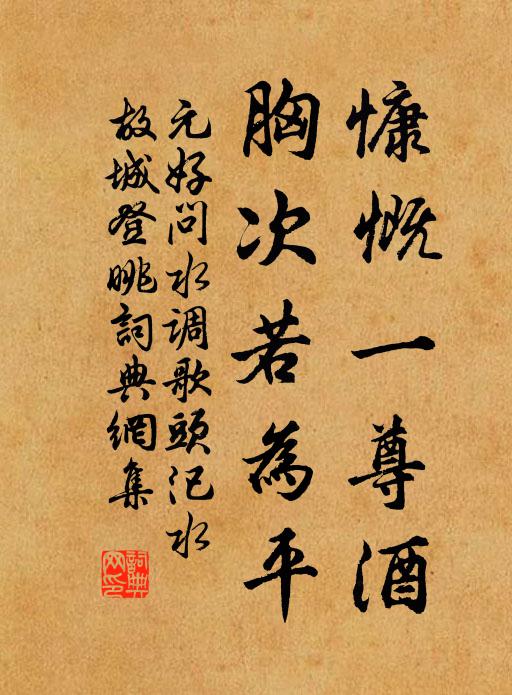 慷慨一尊酒
胸次若為平
元好問水调歌頭汜水
故城登眺詞典網集
詞典網印